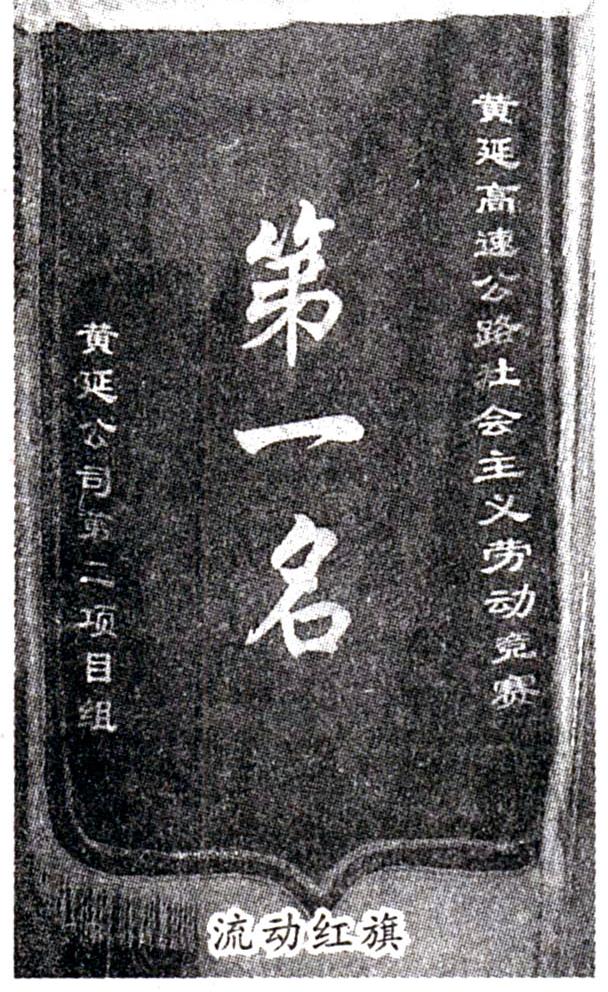 黄延高速公路社会主义劳动竞赛
第一名
黄延公司第二项目组
流动红旗